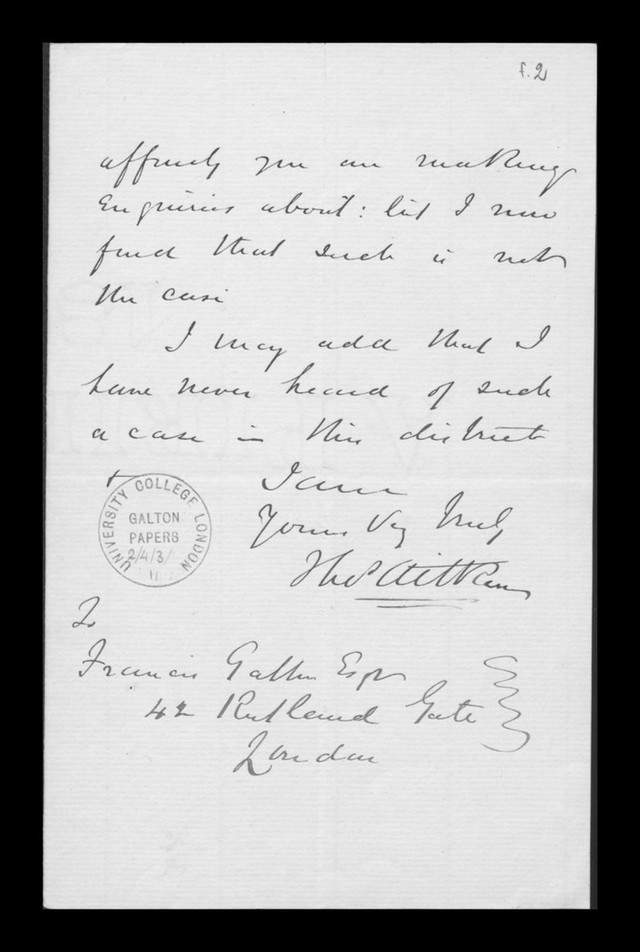 f. 2
you are making
Enquiries about: but I now
find that such is not
the case
I may add that I
have never heard of such
a case in this district
I am
Yours Very Truly
Thos Aitken
UNIVERSITY COLLEGE LONDON
GALTON
PAPERS
2/4/3/
To
Francis Galton Esqr
42 Rutland Gate
London